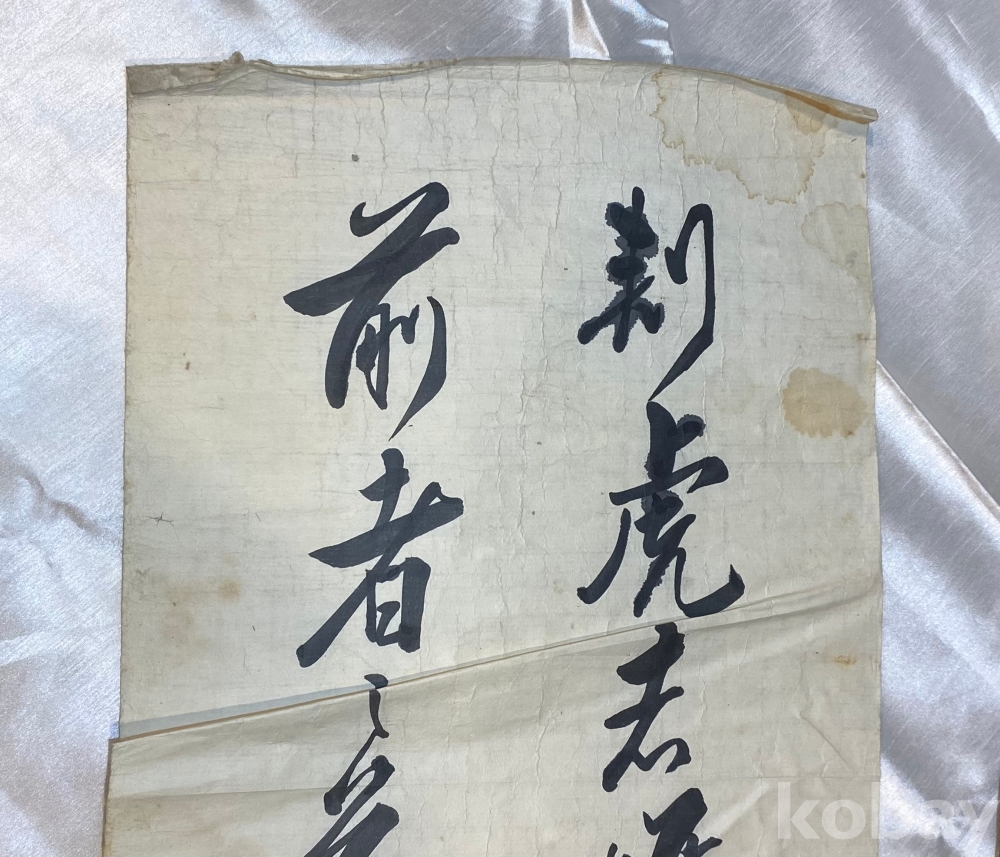 刺虎者
前者之
kobay